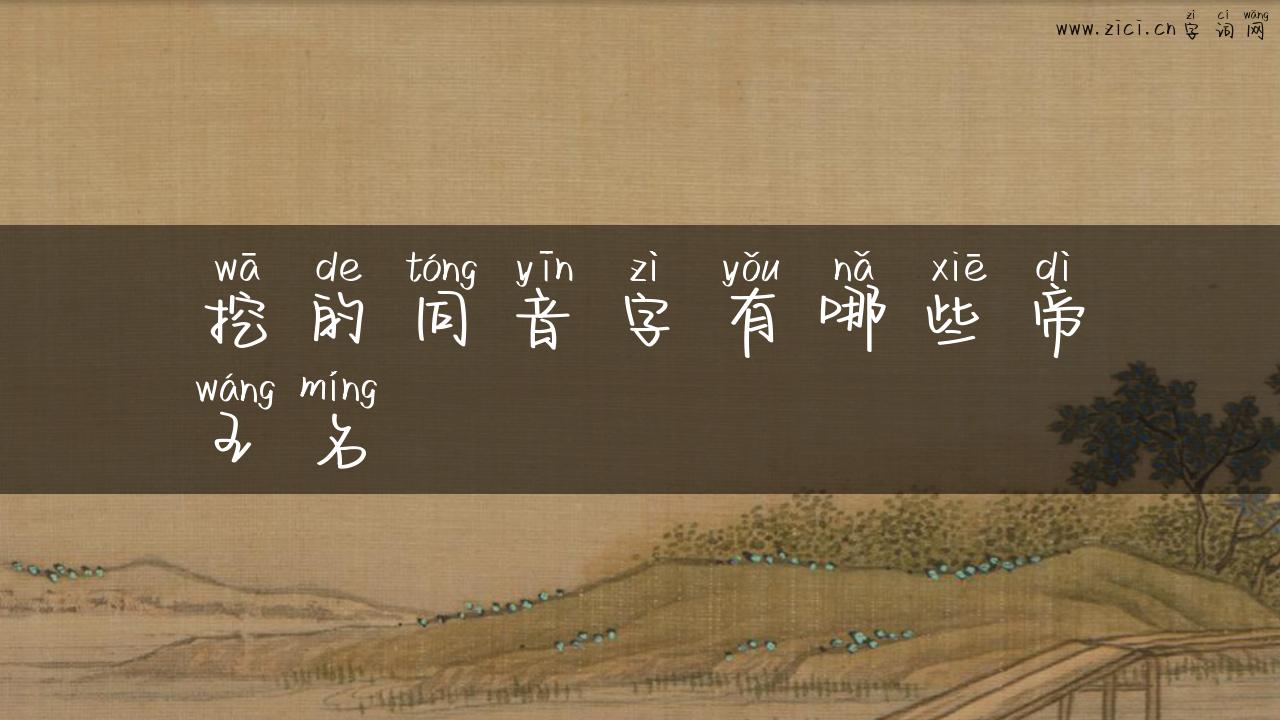 zì cí wǎng
www.zici.cn 字词网
wā de tóng yīn zì yǒu nǎ xiē dì
挖的同音字有哪些帝
wáng míng
王名